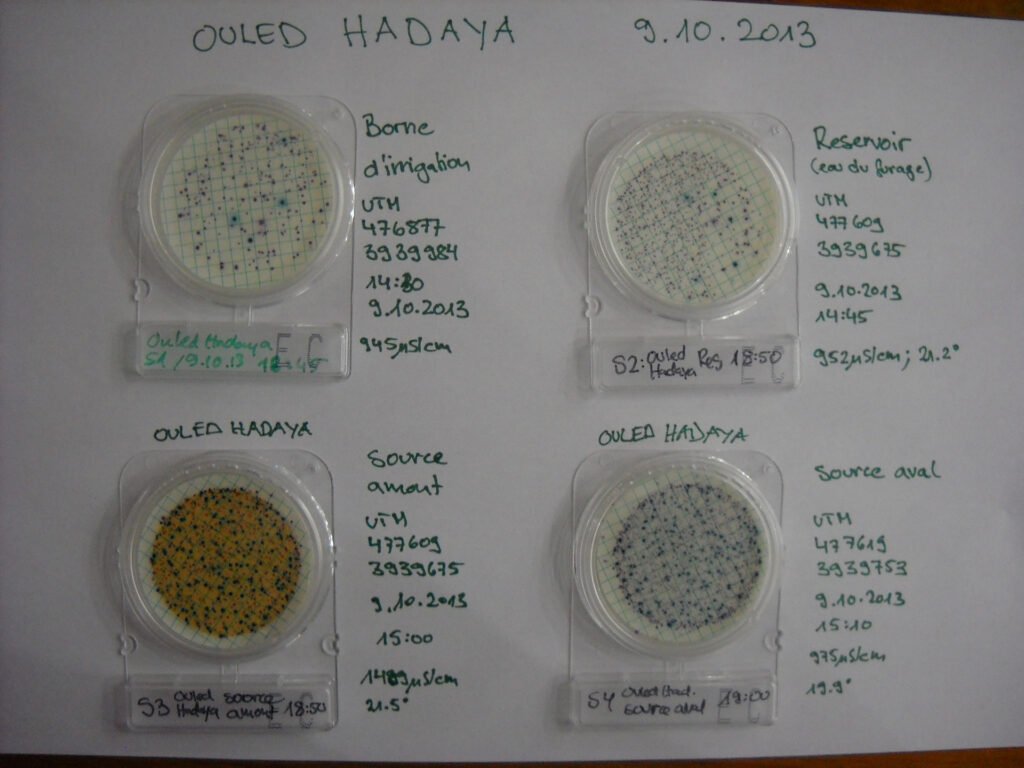 OULED HADAYA 9.10.2013
Borne
d'irrigation
UTM
476877
3939984
14:30
9.10.2013
945µS/cm
Ouled Hadaya E C
S1 / 9.10.13
Reservoir
(eau du forage)
UTM
477609
3939675
9.10.2013
14:45
952µS/cm; 21.2°
S2: Ouled
Hadaya Res 18:50
E C
OULED HADAYA
Source
amont
UTM
477609
3939675
9.10.2013
15:00
µS/cm
21.5°
S3 Ouled source
Hadaya amont 18:50
E C
OULED HADAYA
Source aval
UTM
477619
3939753
9.10.2013
15:10
975µS/cm
19.9°
S4 Ouled Had. 19:00
source aval E C